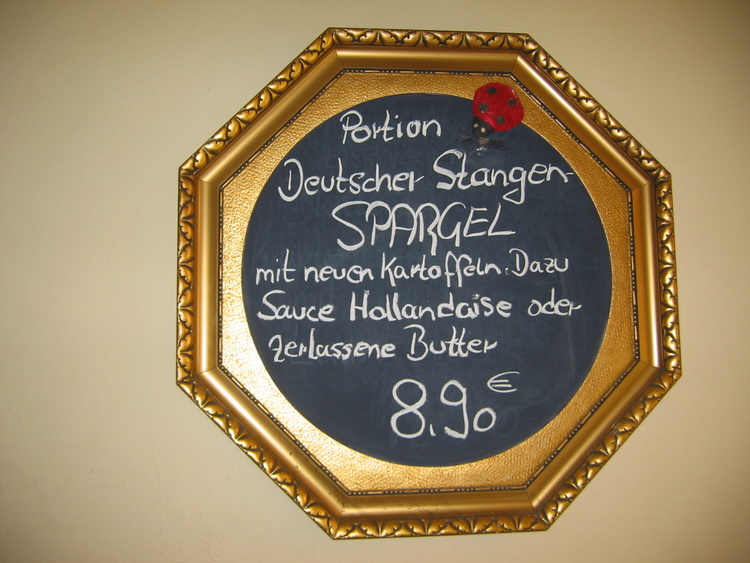 Portion
Deutscher Stangen-
SPARGEL
mit neuen Kartoffeln. Dazu
Sauce Hollandaise oder
zerlassene Butter
8,90 €